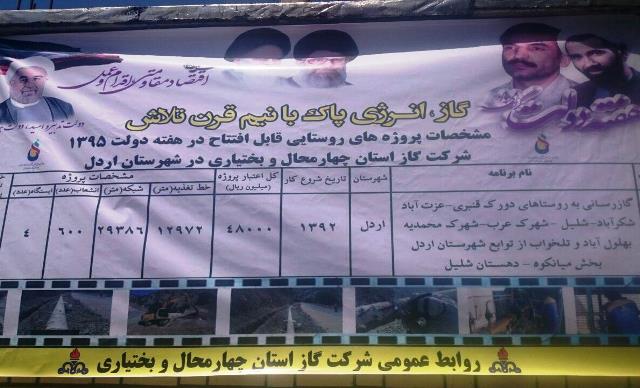 اقتصاد مقاومتی، اقدام و عمل
هفته دولت
دولت تدبیر و امید
گاز، انرژی پاک با نیم قرن تلاش
مشخصات پروژه های روستایی قابل افتتاح در هفته دولت ۱۳۹۵
شرکت گاز استان چهارمحال و بختیاری در شهرستان اردل
نام برنامه
شهرستان
تاریخ شروع کار
کل اعتبار پروژه (میلیون ریال)
مشخصات پروژه
خط تغذیه(متر)
شبکه(متر)
انشعاب(عدد)
ایستگاه(عدد)
گازرسانی به روستاهای دورک قنبری-عزت آباد
شکرآباد-شلیل-شهرک عرب-شهرک محمدیه
بهلول آباد و تلخواب از توابع شهرستان اردل
بخش میانکوه - دهستان شلیل
اردل
۱۳۹۲
۴۸۰۰۰
۱۲۹۷۲
۲۹۳۸۶
۶۰۰
۴
روابط عمومی شرکت گاز استان چهارمحال و بختیاری